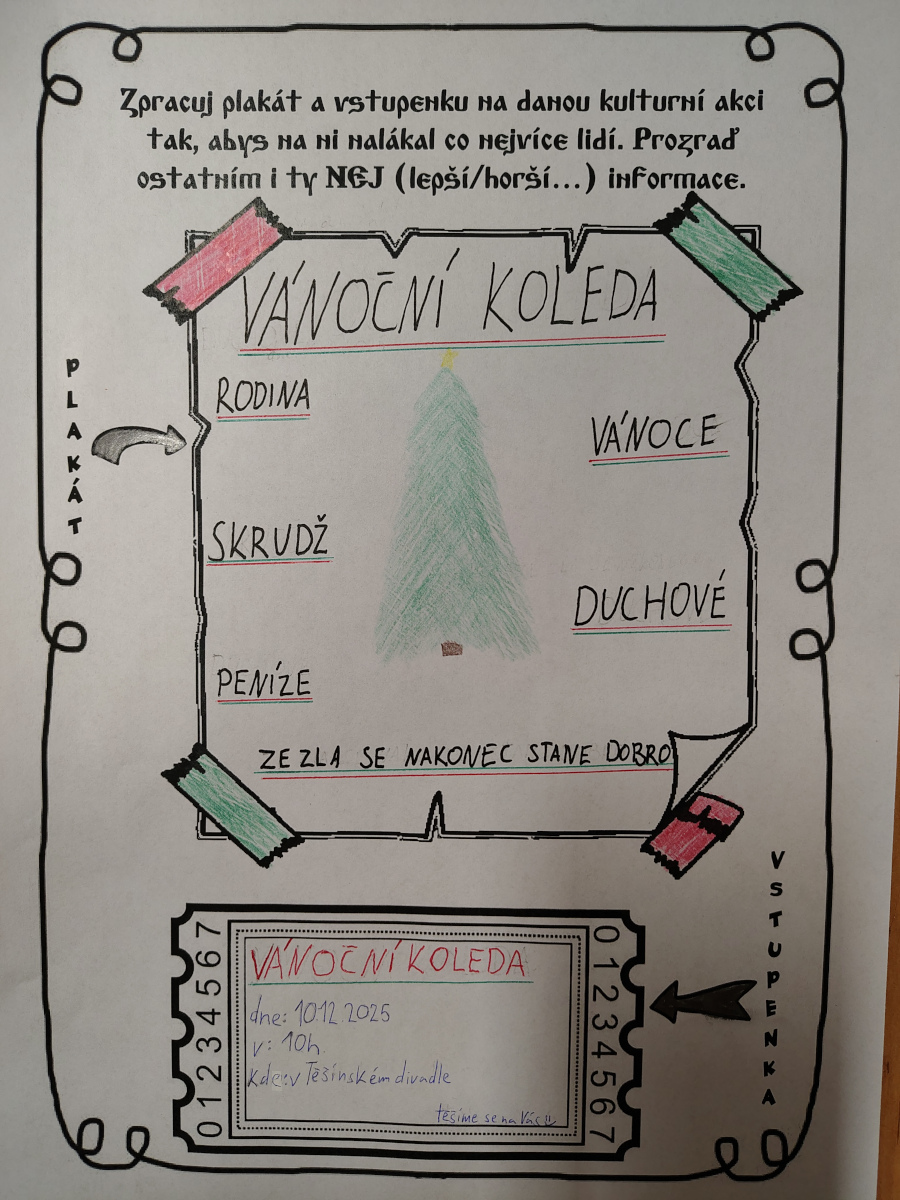 Zpracuj plakát a vstupenku na danou kulturní akci
tak, abys na ni nalákal co nejvíce lidí. Prozraď
ostatním i ty NEJ (lepší/horší...) informace.
PLAKÁT
VÁNOČNÍ KOLEDA
RODINA
VÁNOCE
SKRUDŽ
DUCHOVÉ
PENÍZE
ZE ZLA SE NAKONEC STANE DOBRO
VSTUPENKA
01234567
VÁNOČNÍ KOLEDA
dne: 10.12.2025
v: 10h.
Kde: v Těšínském divadle
těšíme se na Vás
01234567